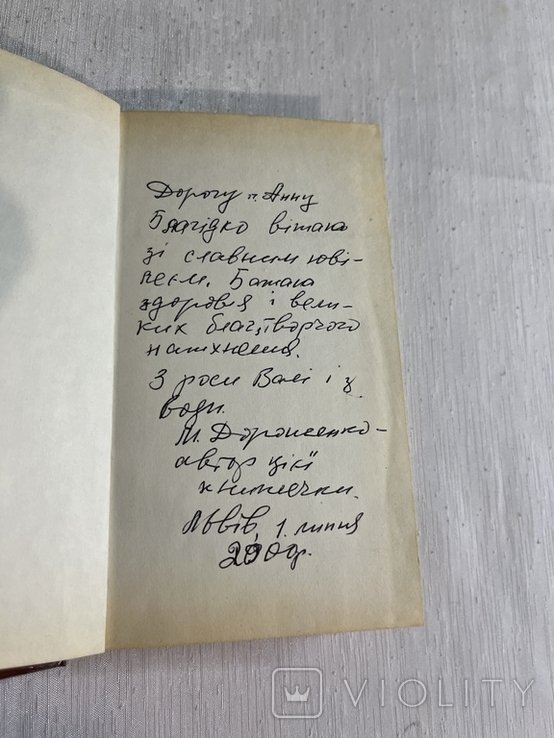 Дорогу п. Анну
вітаю
зі славним юві-
леєм. Бажаю
здоровля і вели-
ких благ, творчого
натхнення.
З роси Вам і з
води.
М. Дорошенко-
автор цієї
книжечки.
Львів, 1 липня
2000р.
VIOLITY